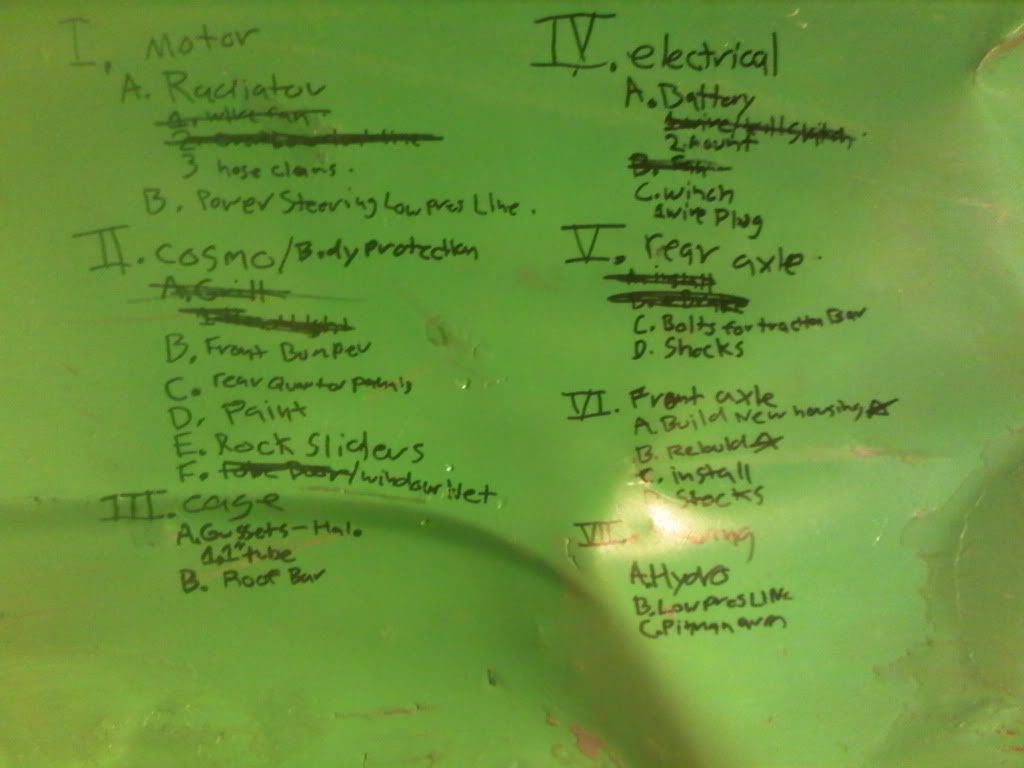 I. Motor
A. Radiator
1. wire fan
2
3 hose clams.
B. Power Steering Low Pres Line.
II. cosmo/Body protection
A. Grill
B. Front Bumper
C. rear Quarter panels
D. Paint
E. Rock Sliders
F. Tube Door/window Net
III. cage
A. Gussets - Halo
1. 1" tube
B. Roof Bar
IV. electrical
A. Battery
1. wire/kill Switch
2. Mount
B. Fan
C. winch
1 wire plug
V. rear axle.
A. install
C. Bolts for traction Bar
D. Shocks
VI. Front axle
A. Build New housing ☆
B. Rebuild ☆
C. install
D. Shocks
VII.
A. Hydro
B. Low pres LINe
C. Pitman arm